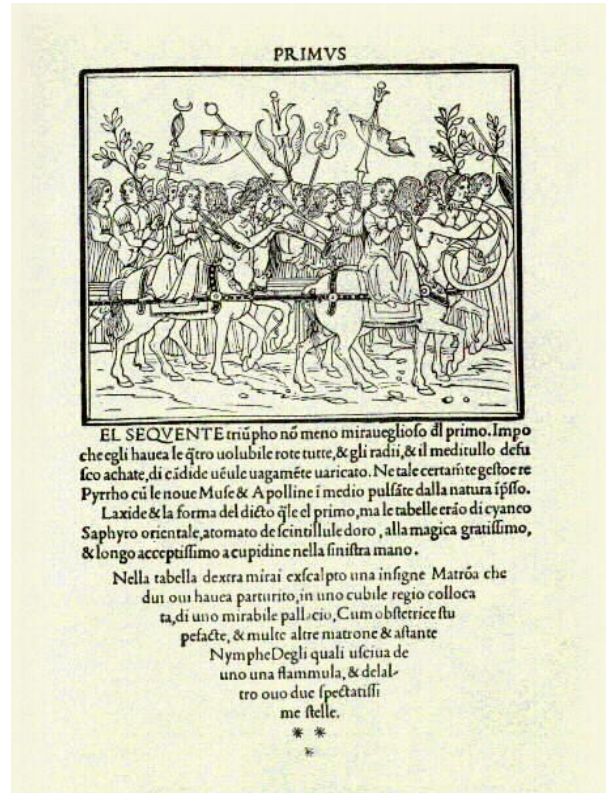 PRIMVS
EL SEQVENTE triũpho nõ meno miraueglioſo d̃l primo. Impo
che egli hauea le q̃tro uolubile rote tutte, & gli radii, & il meditullo defu
ſco achate, di cãdide uẽule uagamẽte uaricato. Ne tale certam̃te geſtoe re
Pyrrho cũ le noue Muſe & Apolline ĩ medio pulſãte dalla natura ĩpſſo.
Laxide & la forma del dicto q̃le el primo, ma le tabelle erão di cyaneo
Saphyro orientale, atomato de ſcintillule doro, alla magica gratiſſimo,
& longo acceptiſſimo a cupidine nella ſiniſtra mano.
Nella tabella dextra mirai exſcalpto una inſigne Matrõa che
dui oui hauea parturito, in uno cubile regio colloca
ta, di uno mirabile pallacio, Cum obſtetrice ſtu
pefacte, & multe altre matrone & aſtante
Nymphe Degli quali uſciua de
uno una flammula, & delal-
tro ouo due ſpectatiſſi
me ſtelle.
* *
*